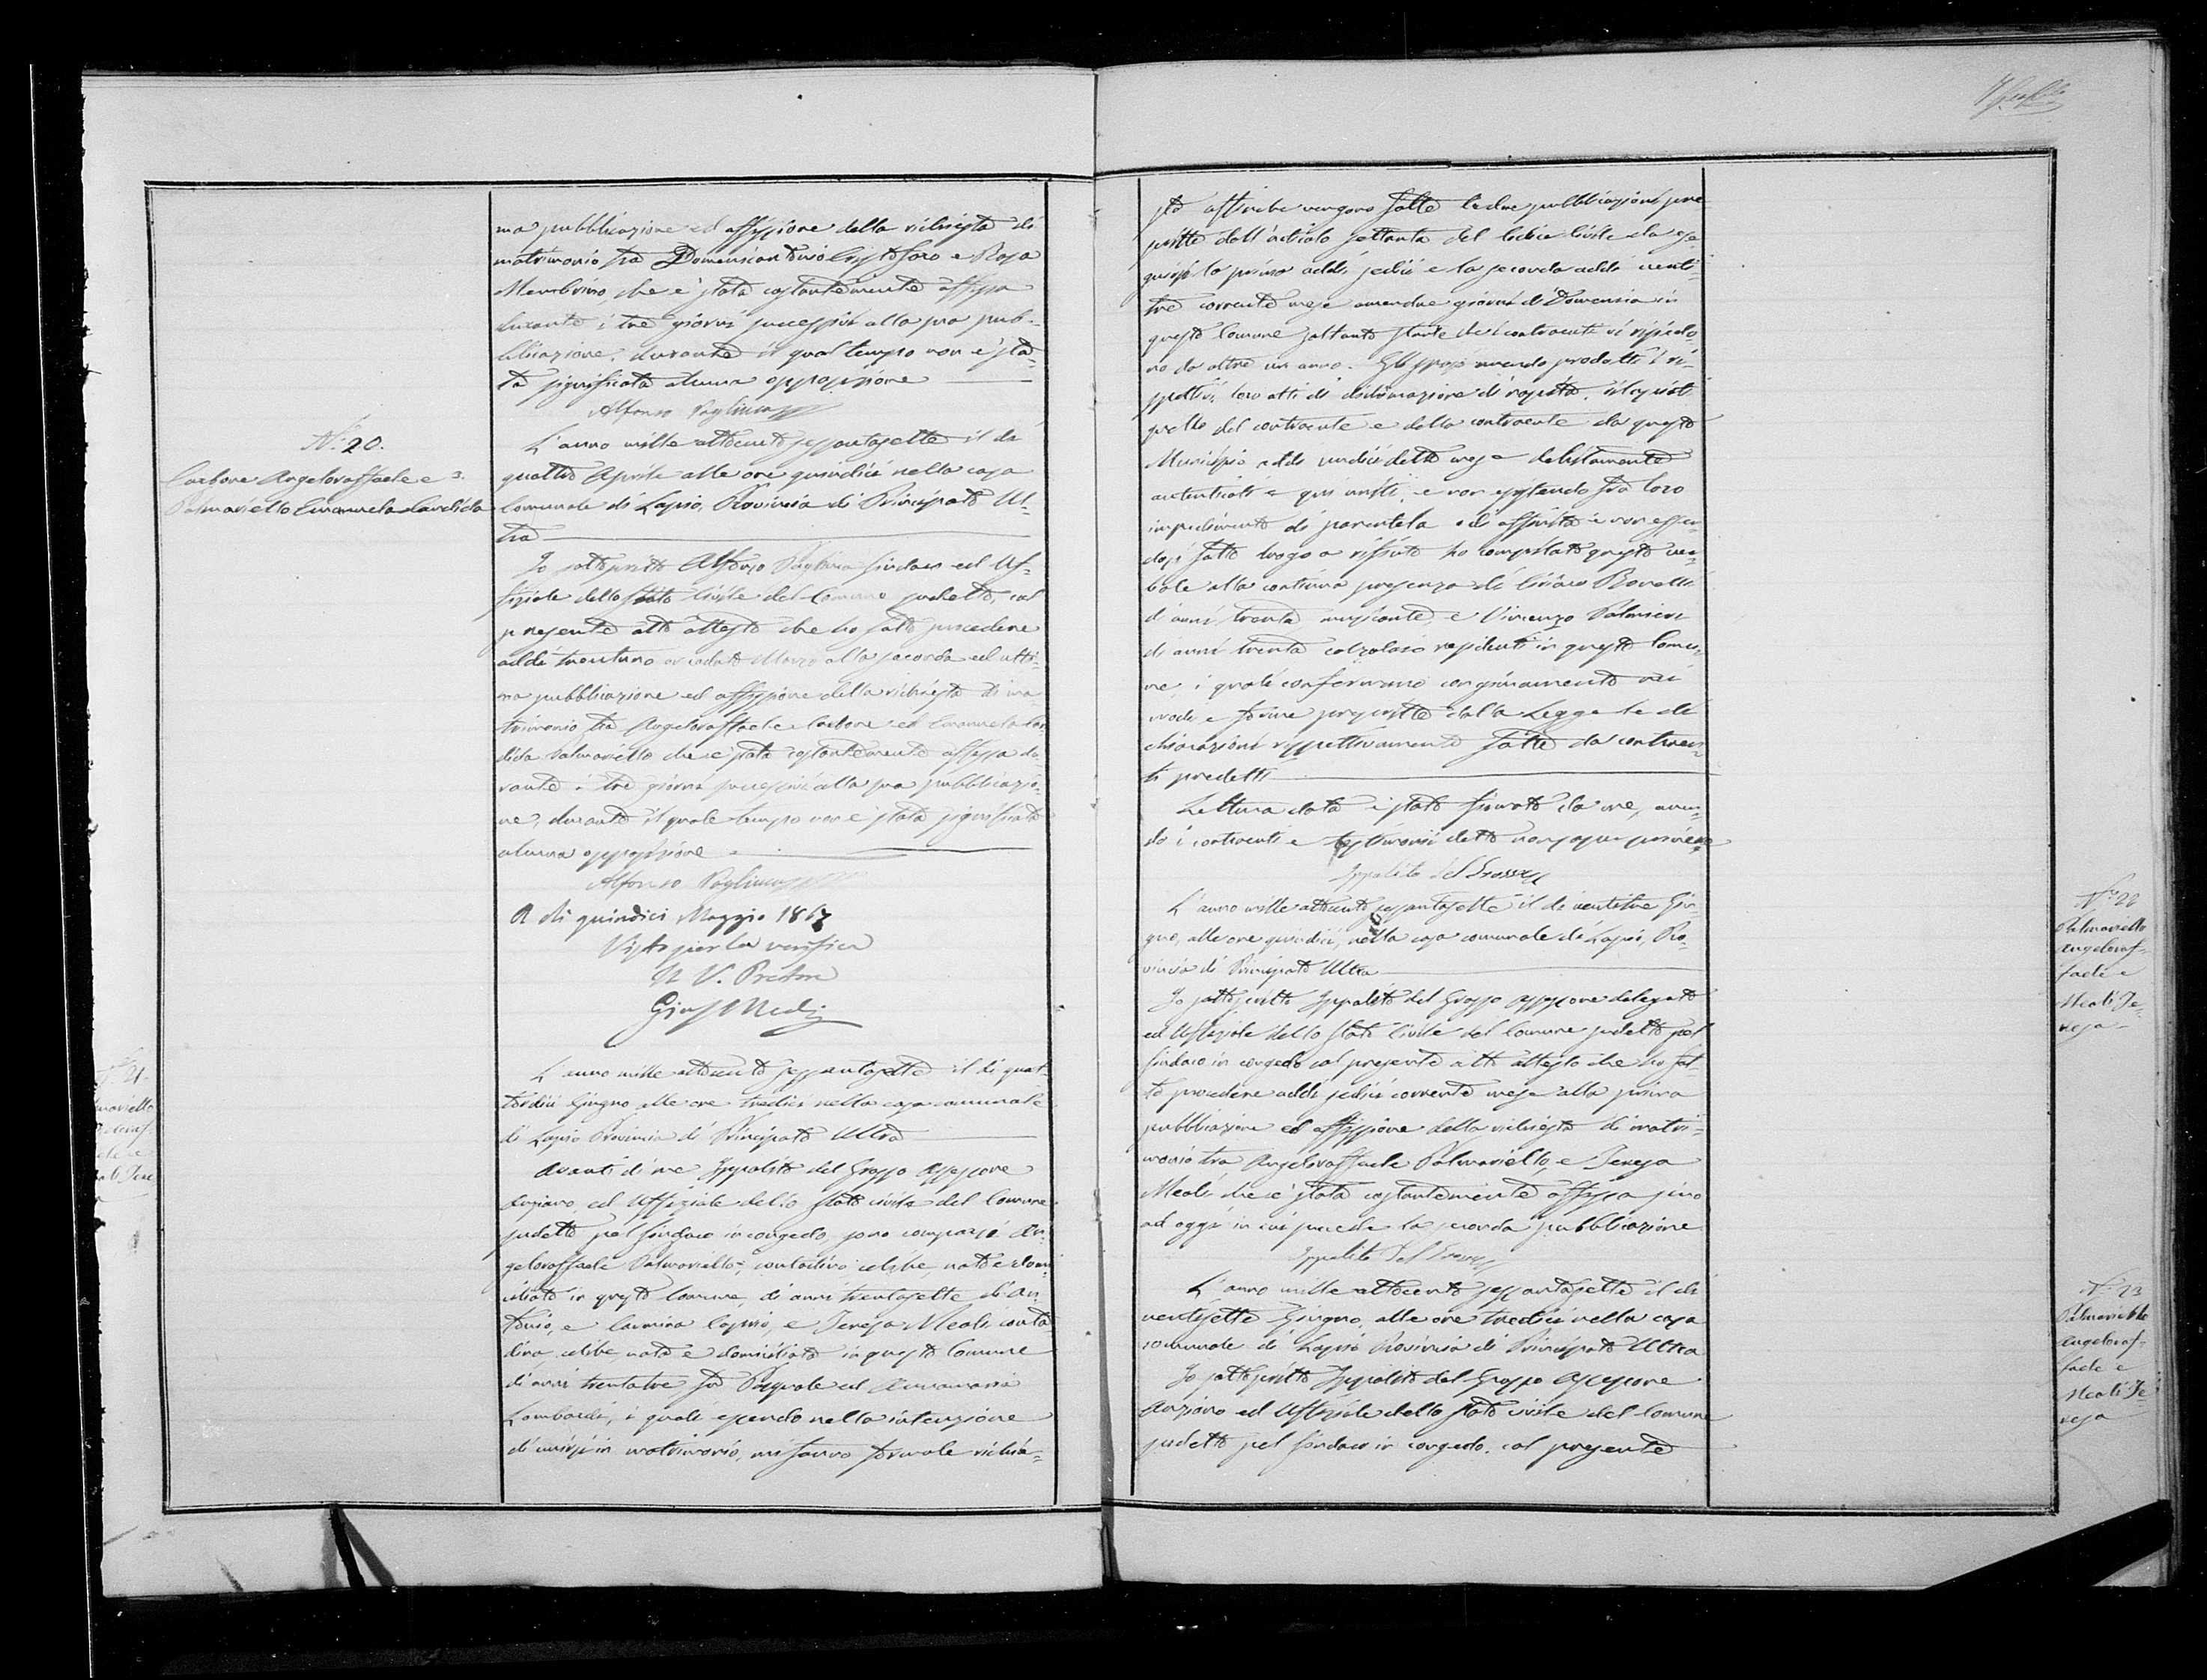 ma pubblicazione ed affissione della richiesta di
matrimonio tra Domenicantonio Cristofaro e Rosa
Membrino che è stata costantemente affissa
durante i tre giorni successivi alla sua pub=
blicazione, durante il qual tempo non è sta=
ta significata alcuna opposizione
Alfonso Pagliuca
N.° 20.
Carbone Angeloraffaele e
Palmariello Emanuela Candida
L'anno mille ottocento sessantasette il dì
quattro Aprile alle ore quindici nella casa
Comunale di Lapio, Provincia di Principato Ul=
tra
Io sottoscritto Alfonso Pagliuca Sindaco ed Uf=
fiziale dello Stato Civile del Comune sudetto, col
presente atto attesto che ho fatto procedere
addì trentuno scaduto Marzo alla seconda ed ulti=
ma pubblicazione ed affissione della richiesta di ma
trimonio tra Angeloraffaele Carbone ed Emanuela Can
dida Palmariello che è stata costantemente affissa du
rante i tre giorni successivi alla sua pubblicazio=
ne, durante il quale tempo non è stata significata
alcuna opposizione
Alfonso Pagliuca
A dì quindici Maggio 1867
Visto per la verifica
Il V. Pretore
21.
L'anno mille ottocento sessantasette il dì quat=
tordici Giugno alle ore tredici nella casa comunale
di Lapio Provincia di Principato Ultra
Avanti di me Ippolito del Grosso Assessore
Anziano, ed Uffiziale dello Stato civile del Comune
sudetto pel Sindaco in congedo, sono comparsi An=
geloraffaele Palmariello, contadino celibe, nato e domi
ciliato in questo Comune, di anni trentasette di An
tonio, e Carmina Caprio, e Teresa Meoli conta
dina, celibe, nata e domiciliata in questo Comune
di anni trentatre fu Pasquale ed Annamaria
Lombardi, i quali essendo nella intenzione
di unirsi in matrimonio, mi fanno formale richie=
sta affinche vengano fatte le due pubblicazioni pre
scritte dall'articolo settanta del Codice Civile da ese
guirsi la prima addì sedici e la seconda addì venti
tre corrente mese amendue giorni di Domenica in
questo Comune soltanto stante dei contraenti vi risiedo
no da oltre un anno. Gli sposi avendo prodotti i ri=
spettivi loro atti di dichiarazione di nascita, rilasciati
quello del contraente e della contraente da questo
Municipio addì undici detto mese debitamente
autenticati e qui uniti, e non esistendo fra loro
impedimento di parentela o di affinità e non essen=
dosi fatto luogo a rifiuto ho compilato questo ver=
bale alla continua presenza di Ciriaco Bonelli
d'anni trenta e Vincenzo Palmieri
di anni trenta calzolaio residenti in questo Comu=
ne, i quali confermano congiuntamente nei
modi e forme prescritte dalla Legge le di
chiarazioni rispettivamente fatte da contraen=
ti predetti
Lettura data è stato firmato da me, aven=
do i contraenti e testimoni detto non saper scrivere
Ippolito Del Grosso
N.° 22
Palmariello
Angeloraf=
faele e
Meoli Te=
resa
L'anno mille ottocento sessantasette il dì ventitre Giu=
gno, alle ore quindici, nella casa comunale di Lapio, Pro=
vincia di Principato Ultra
Io sottoscritto Ippolito del Grosso Assessore delegato
ed Uffiziale dello Stato Civile del Comune sudetto pel
Sindaco in congedo col presente atto attesto che ho fat=
to procedere addì sedici corrente mese alla prima
pubblicazione ed affissione della richiesta di matri=
monio tra Angeloraffaele Palmariello, e Teresa
Meoli che è stata costantemente affissa sino
ad oggi in cui succede la seconda pubblicazione
Ippolito Del Grosso
N.° 23
Palmariello
Angeloraf=
faele e
Meoli Te
resa
L'anno mille ottocento sessantasette il dì
ventisette Giugno, alle ore tredici nella casa
comunale di Lapio Provincia di Principato Ultra
Io sottoscritto Ippolito del Grosso Assessore
Anziano ed Uffiziale dello Stato civile del Comune
sudetto pel Sindaco in congedo, col presente